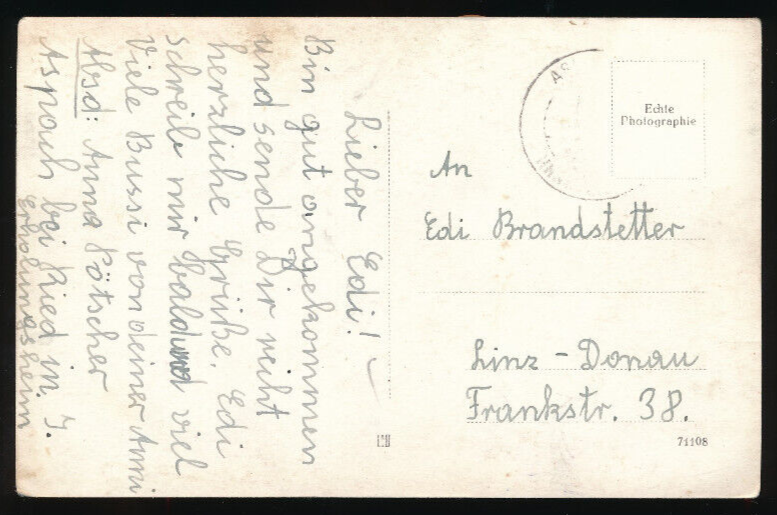 Lieber Edi!
Bin gut angekommen
und sende Dir recht
herzliche Grüße. Edi
schreib mir bald und viel
Viele Bussi von deiner Anni
Absd: Anna Pötscher
Aspach bei Ried in. I.
Erholungsheim
AS
Echte
Photographie
An
Edi Brandstetter
Linz - Donau
Frankstr. 38.
71108